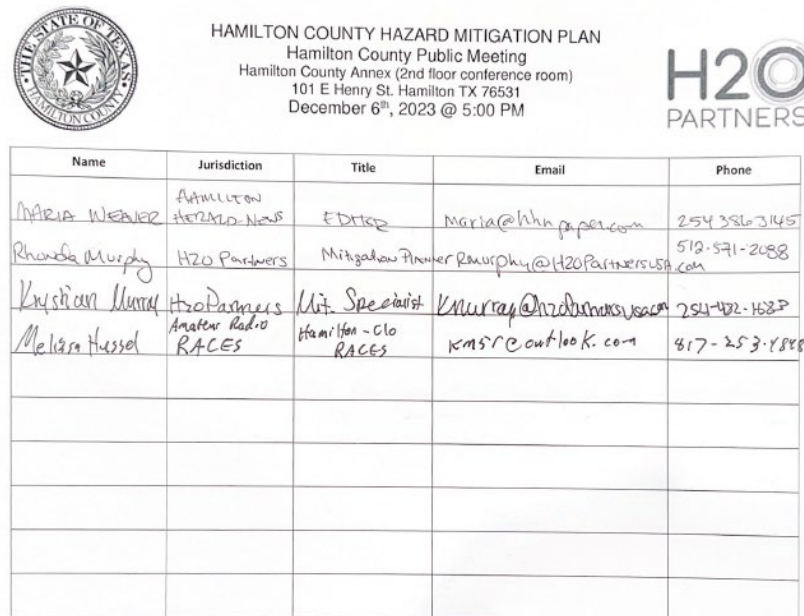 THE STATE OF TEXAS
HAMILTON COUNTY
HAMILTON COUNTY HAZARD MITIGATION PLAN
Hamilton County Public Meeting
Hamilton County Annex (2nd floor conference room)
101 E Henry St. Hamilton TX 76531
December 6th, 2023 @ 5:00 PM
H2O
PARTNERS
Name Jurisdiction Title Email Phone
MARIA WEAVER HAMILTON HERALD-NEWS EDITOR maria@hhnpaper.com 254 386 3145
Rhonda Murphy H2O Partners Mitigation Planner Rmurphy@H2OPartnersUSA.com 512-571-2088
Krystian Murray H2O Partners Mit. Specialist Kmurray@h2opartnersusa.com
Melissa Amateur Radio RACES Hamilton - Co RACES